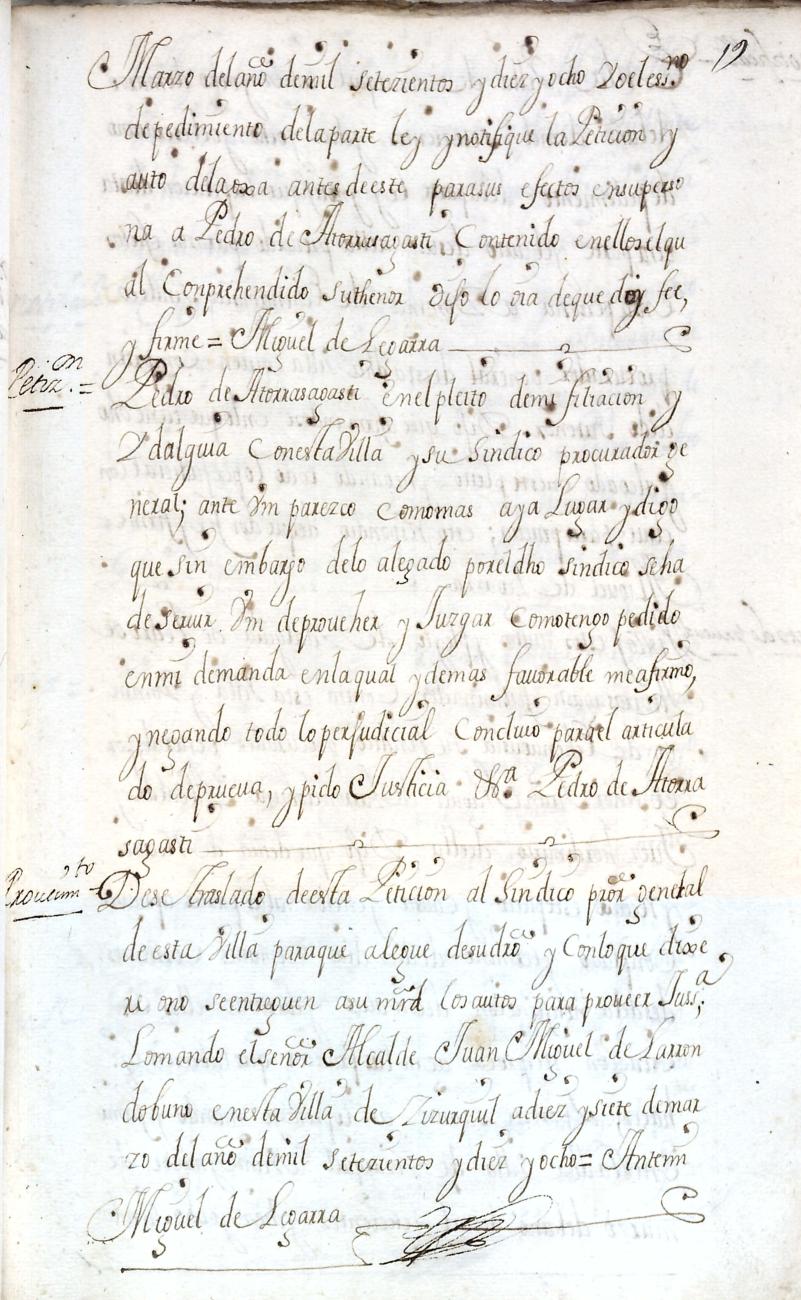 19
Marzo del año de mil setezientos y diez y ocho Yo el ess.no
de pedimiento de la parte ley y notifique la Peticion y
auto de la oxa antes de este para sus efectos en su perso
na a Pedro de Atorrasagasti Contenido en ellos el qu
al Conprehendido su thenor dijo lo oia de que doy fee,
y firme = Miguel de Legarra
Petiz.on =
Pedro de Atorrasagasti en el pleito de mi filiacion y
Ydalguia Con esta Villa y su Sindico procurador ge
neral; ante Vm parezco como mas aya Lugar y digo
que sin embargo de lo alegado por el dho sindico se ha
de servir Vm de proveher y Juzgar Como tengo pedido
en mi demanda en la qual y demas favorable me afirmo,
y negando todo lo perjudicial Concluio para el articula
do de prueva, y pido Justicia &.a Pedro de Atorra
sagasti
Proveim.to =
Dese traslado de esta Peticion al Sindico pror general
de esta Villa para que alegue de su dro y Con lo que dixe
re o no se entreguen a su mrd los autos para proveer Juss.a;
Lo mando el señor Alcalde Juan Miguel de Larron
dobuno en esta Villa de Zizurquil a diez y siete de mar
zo del año de mil setezientos y diez y ocho = Antemi
Miguel de Legarra